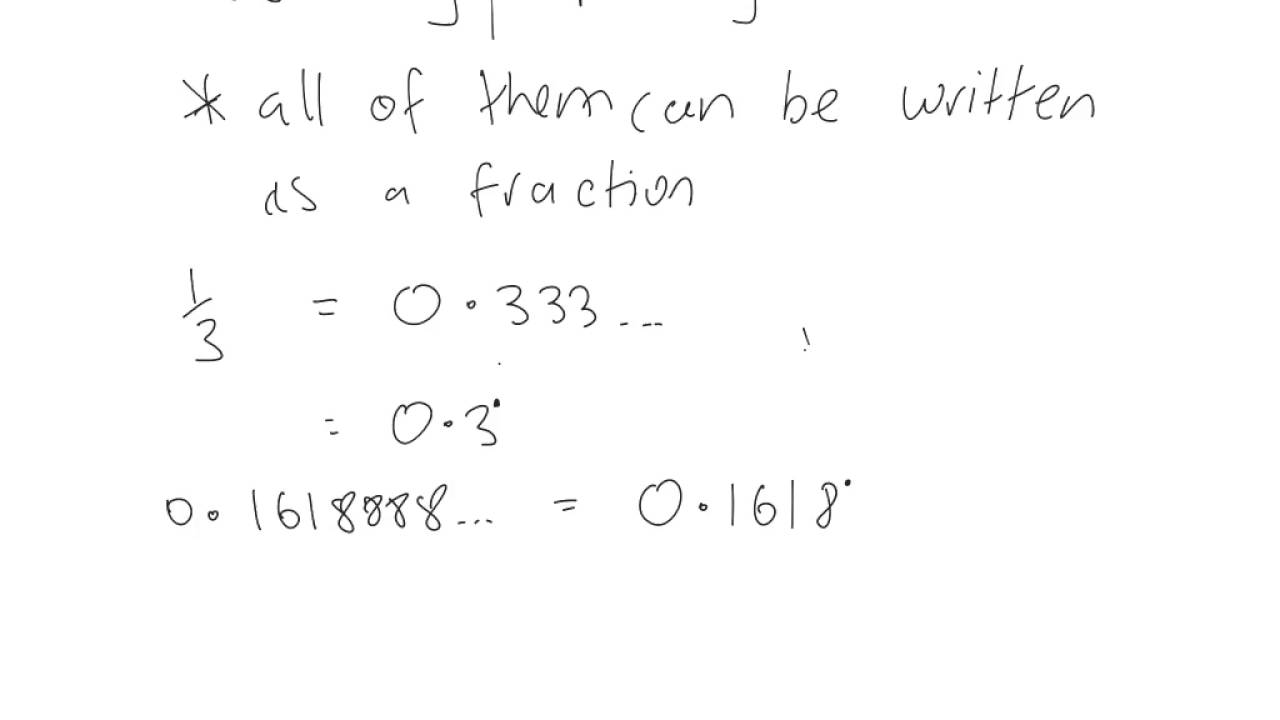 * all of them can be written
as a fraction
1/3 = 0.333...
= 0.3̇
0.1618888... = 0.1618̇